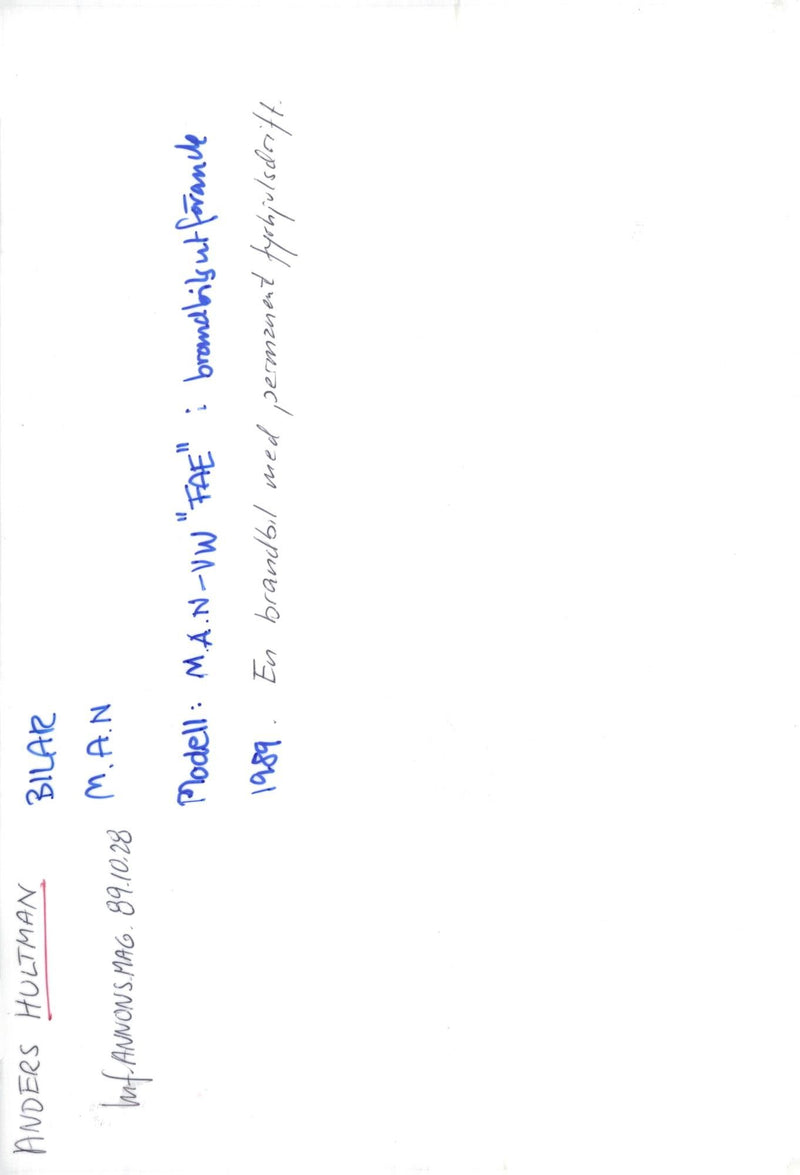 ANDERS HULTMAN
Inf. ANNONSMAG. 89.10.28
BILAR
M.A.N
Modell: M.A.N-VW "FAE" i brandbilsutförande
1989. En brandbil med permanent fyrhjulsdrift.